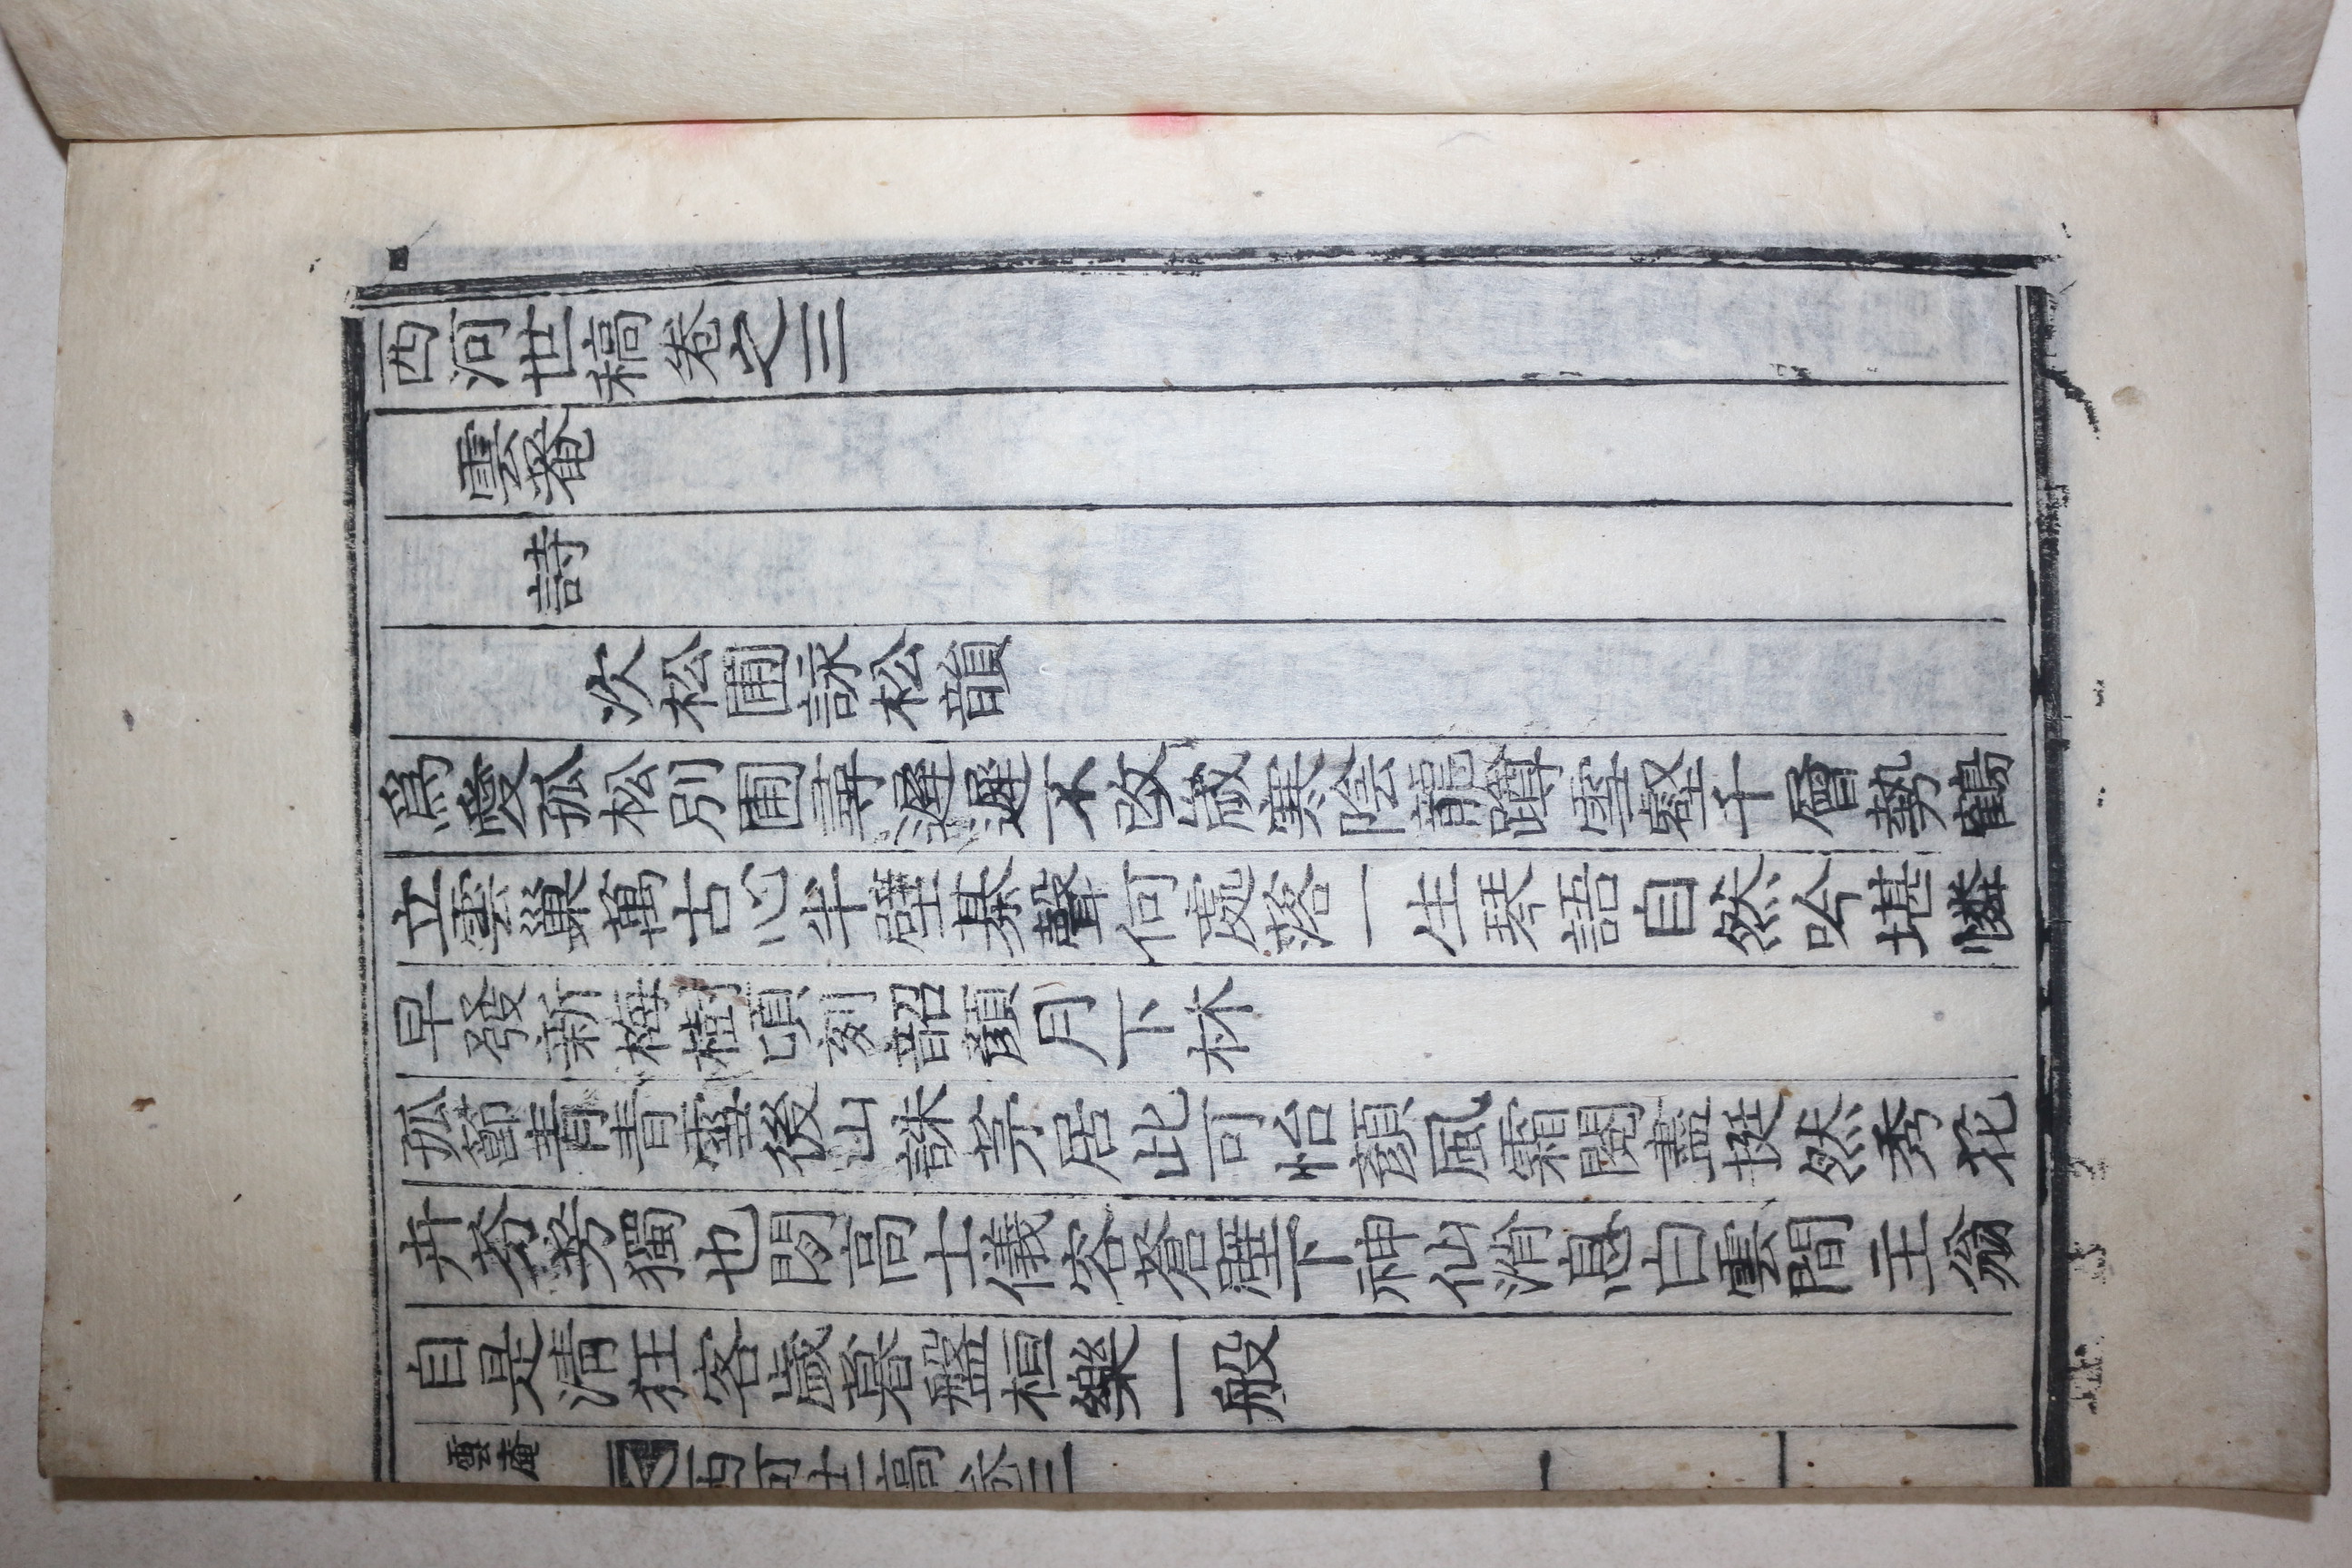 西河世稿卷之三
雲菴
詩
次松圃詠松韻
爲愛孤松別圃尋遲遲不改歲寒陰龍蹲雪壑千層勢鶴
立雲巢萬古心半壁棊聲何處落一生琴語自然吟堪憐
早發新梅樹頃刻韶顔月下林
孤節青青雪後山誅茅居此可怡顔風霜閱盡挺然秀花
卉芳獨也閒高士儀容蒼涯下神仙消息白雲間主翁
自是清狂客歲暮盤桓樂一般
雲菴 西河世稿卷三